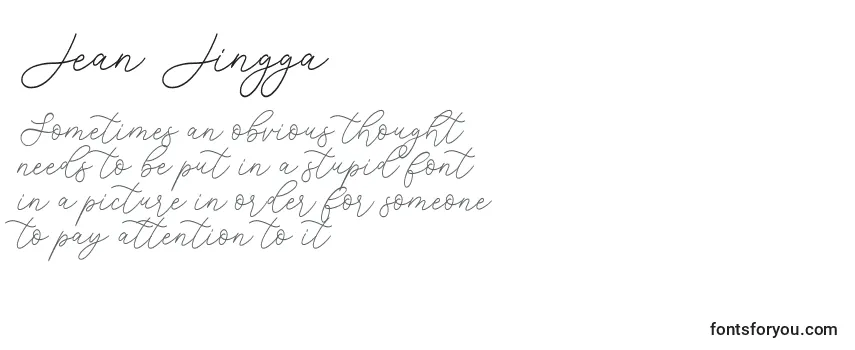 Jean Jingga
Sometimes an obvious thought
needs to be put in a stupid font
in a picture in order for someone
to pay attention to it
fontsforyou.com